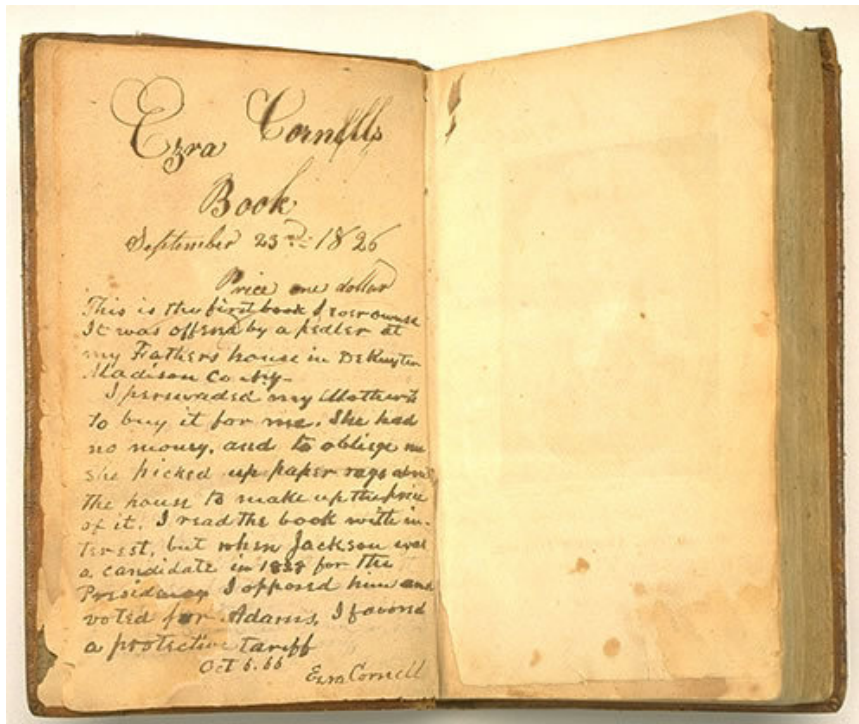 Ezra Cornells
Book
September 23rd 1826
Price one dollar
This is the first book I ever owned
It was offered by a pedler at
my Fathers house in DeRuyter
Madison Co N.Y-
I perswaded my Mother to
to buy it for me. She had
no money, and to obliege me
she picked up paper rags about
the house to make up the price
of it. I read the book with in-
terest, but when Jackson was
a candidate in 1828 for the
Presidency I opposed him and
voted for Adams, I favored
a protective tariff
Oct 5. 66
Ezra Cornell